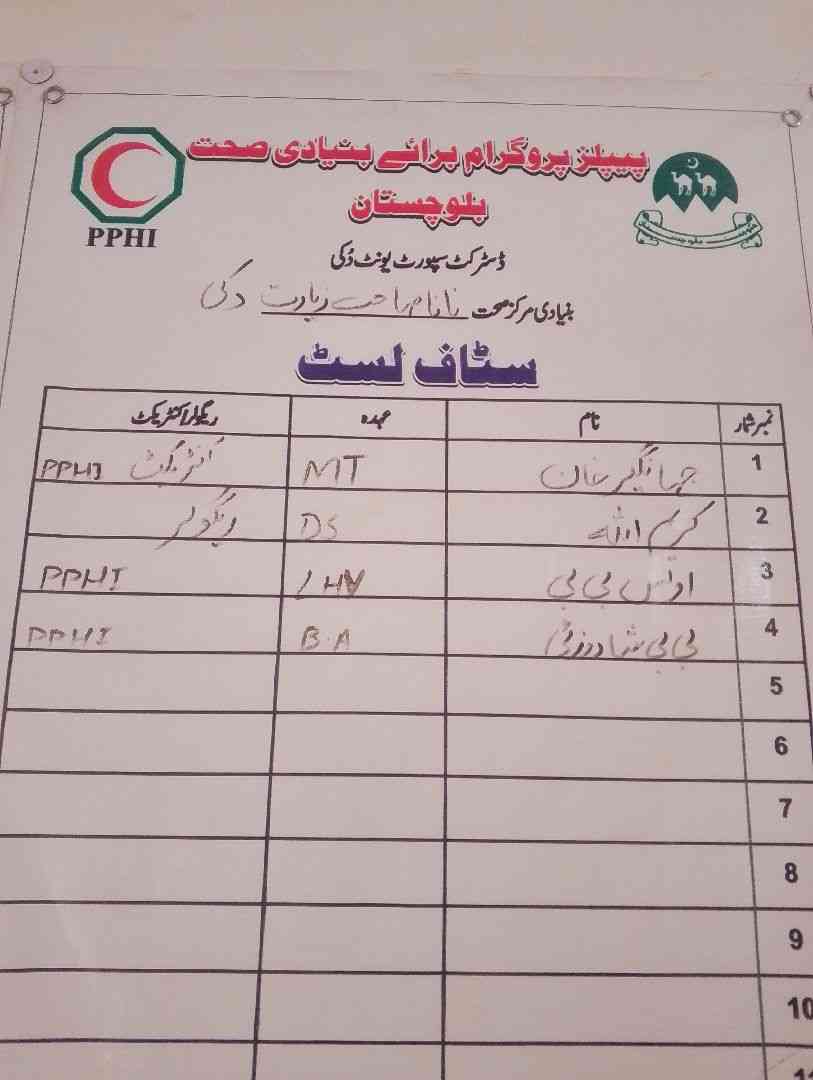 پیپلز پروگرام برائے بنیادی صحت
بلوچستان
PPHI
ڈسٹرکٹ سپورٹ یونٹ دُکی
بنیادی مرکز صحت نانا صاحب زیارت دکی
سٹاف لسٹ
نمبر شمار نام عہدہ ریگولر/کنٹریکٹ
1 جہانگیر خان MT کنٹریکٹ PPHI
2 کریم اللہ DS ریگولر
3 بی بی LHV PPHI
4 بی بی B.A PPHI
5
6
7
8
9
10
11